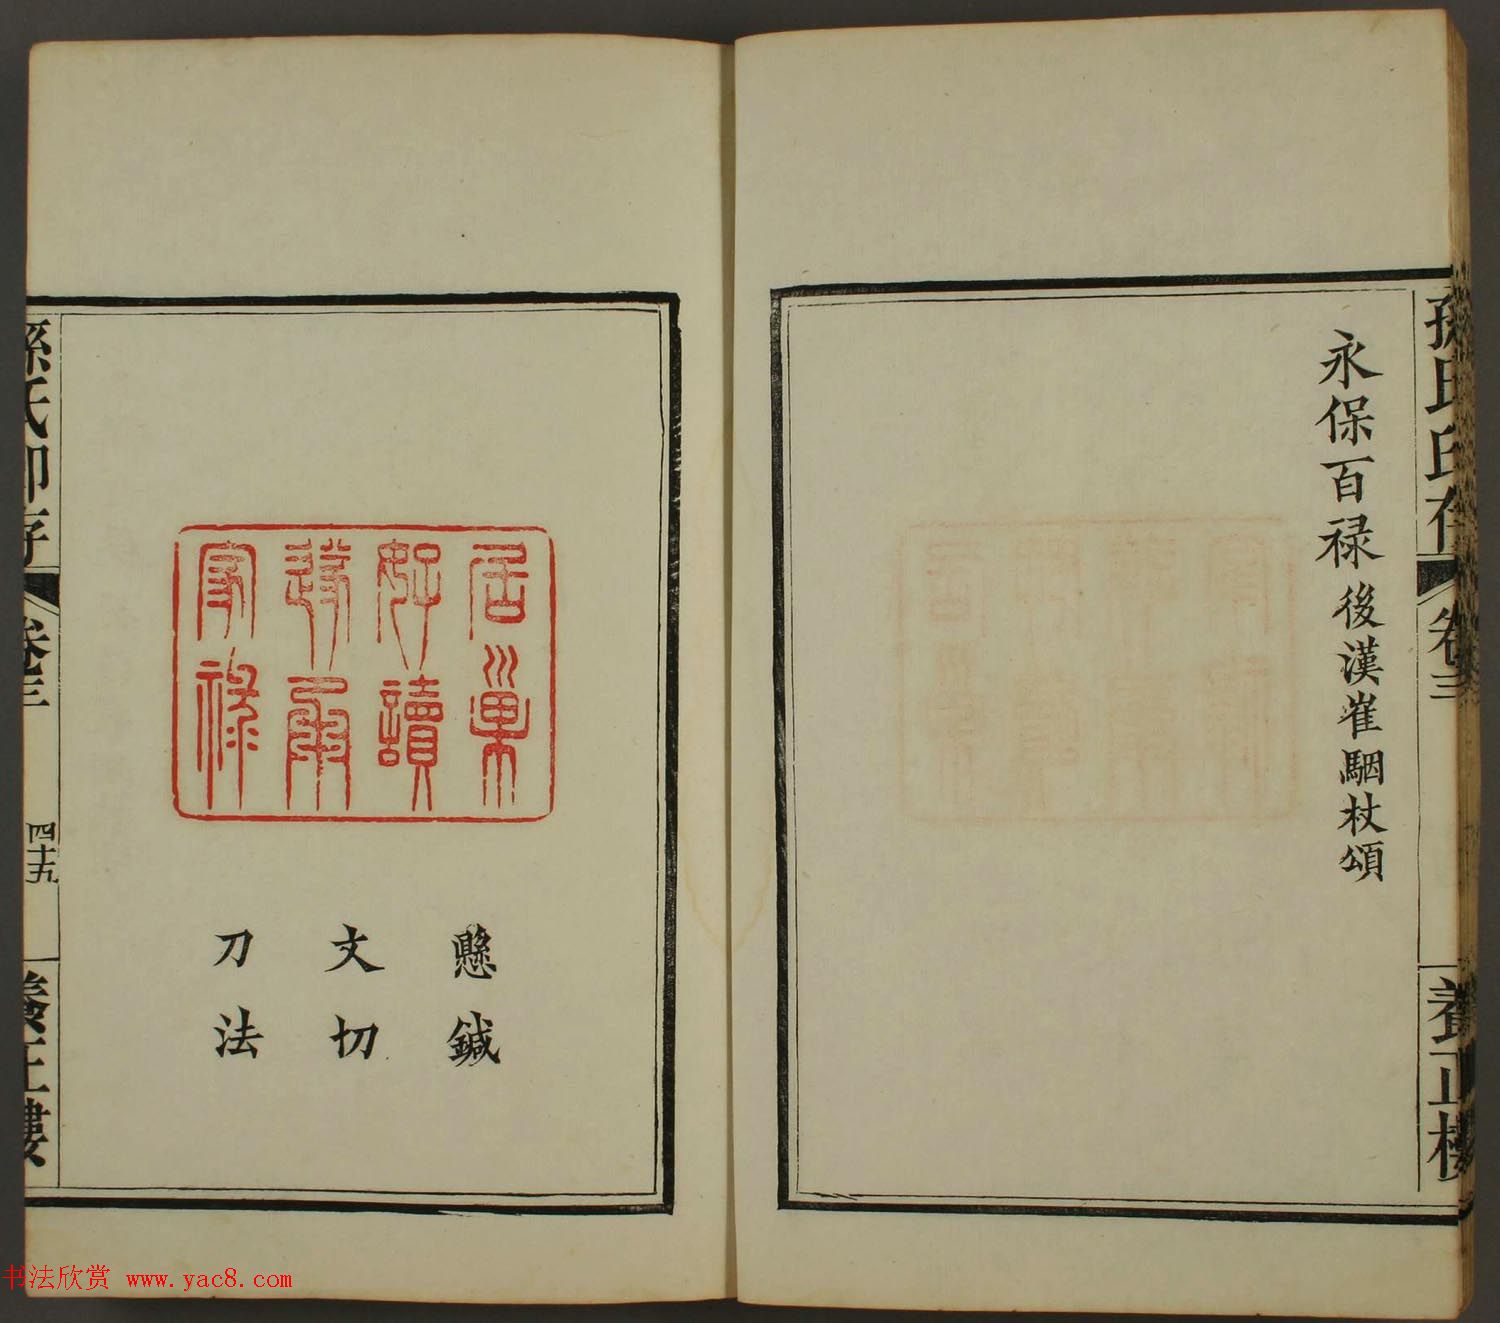 孫氏印存
卷三
養正樓
永保百禄 後漢崔駰杖頌
居巢
好讀
家祿
懸鍼
文切
刀法
孫氏印存
卷三
養正樓
书法欣赏 www.yac8.com